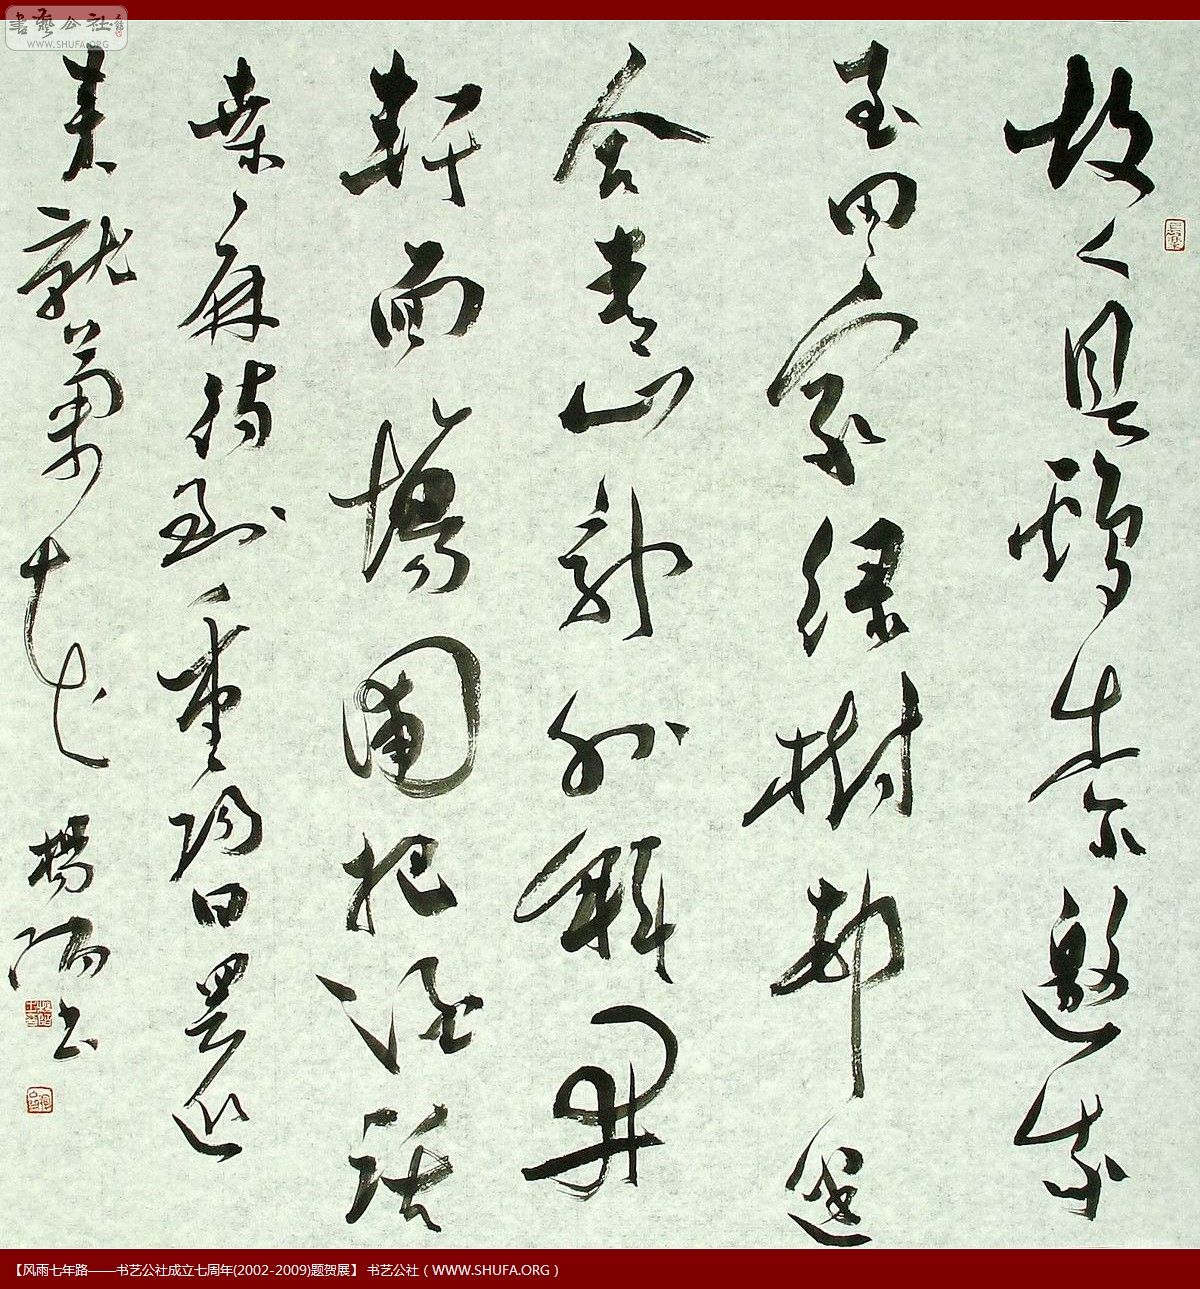 書藝公社
WWW.SHUFA.ORG
故人具鷄黍邀我
至田家綠樹邨邊
合青山郭外斜開
軒面場圃把酒話
桑麻待到重陽日還
来就菊花 楊 书
【风雨七年路——书艺公社成立七周年(2002-2009)题贺展】 书艺公社 ( WWW.SHUFA.ORG )